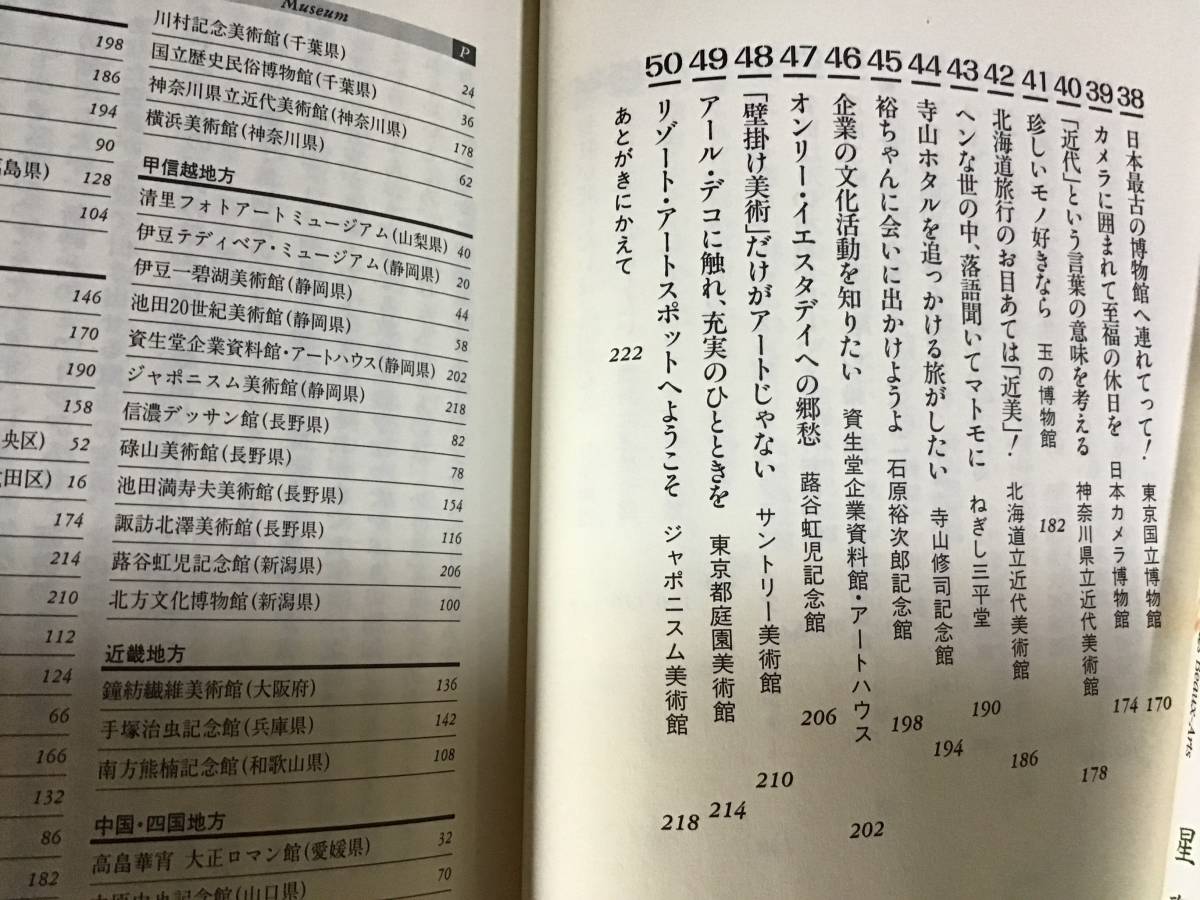 198
186
194
90
島県) 128
104
146
170
190
158
央区) 52
田区) 16
174
214
210
112
124
66
166
132
86
182
Museum
P
川村記念美術館(千葉県) 24
国立歴史民俗博物館(千葉県) 36
神奈川県立近代美術館(神奈川県) 178
横浜美術館(神奈川県) 62
甲信越地方
清里フォトアートミュージアム(山梨県) 40
伊豆テディベア・ミュージアム(静岡県) 20
伊豆一碧湖美術館(静岡県) 44
池田20世紀美術館(静岡県) 58
資生堂企業資料館・アートハウス(静岡県) 202
ジャポニスム美術館(静岡県) 218
信濃デッサン館(長野県) 82
碌山美術館(長野県) 78
池田満寿夫美術館(長野県) 154
諏訪北澤美術館(長野県) 116
蕗谷虹児記念館(新潟県) 206
北方文化博物館(新潟県) 100
近畿地方
鐘紡繊維美術館(大阪府) 136
手塚治虫記念館(兵庫県) 142
南方熊楠記念館(和歌山県) 108
中国・四国地方
高畠華宵 大正ロマン館(愛媛県) 32
中原中也記念館(山口県) 70
38 日本最古の博物館へ連れてって! 東京国立博物館 170
39 カメラに囲まれて至福の休日を 日本カメラ博物館 174
40 「近代」という言葉の意味を考える 神奈川県立近代美術館 178
41 珍しいモノ好きなら 玉の博物館 182
42 北海道旅行のお目あては「近美」! 北海道立近代美術館 186
43 ヘンな世の中、落語聞いてマトモに ねぎし三平堂 190
44 寺山ホタルを追っかける旅がしたい 寺山修司記念館 194
45 裕ちゃんに会いに出かけようよ 石原裕次郎記念館 198
46 企業の文化活動を知りたい 資生堂企業資料館・アートハウス 202
47 オンリー・イエスタデイへの郷愁 蕗谷虹児記念館 206
48 「壁掛け美術」だけがアートじゃない サントリー美術館 210
49 アール・デコに触れ、充実のひとときを 東京都庭園美術館 214
50 リゾート・アートスポットへようこそ ジャポニスム美術館 218
あとがきにかえて 222
Beaux-Arts
星